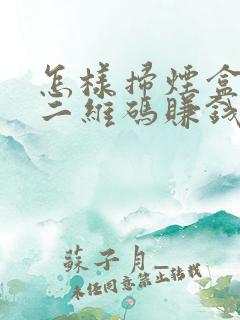 怎樣掃煙盒
二維碼賺錢
蘇子月_
未经同意禁止转载